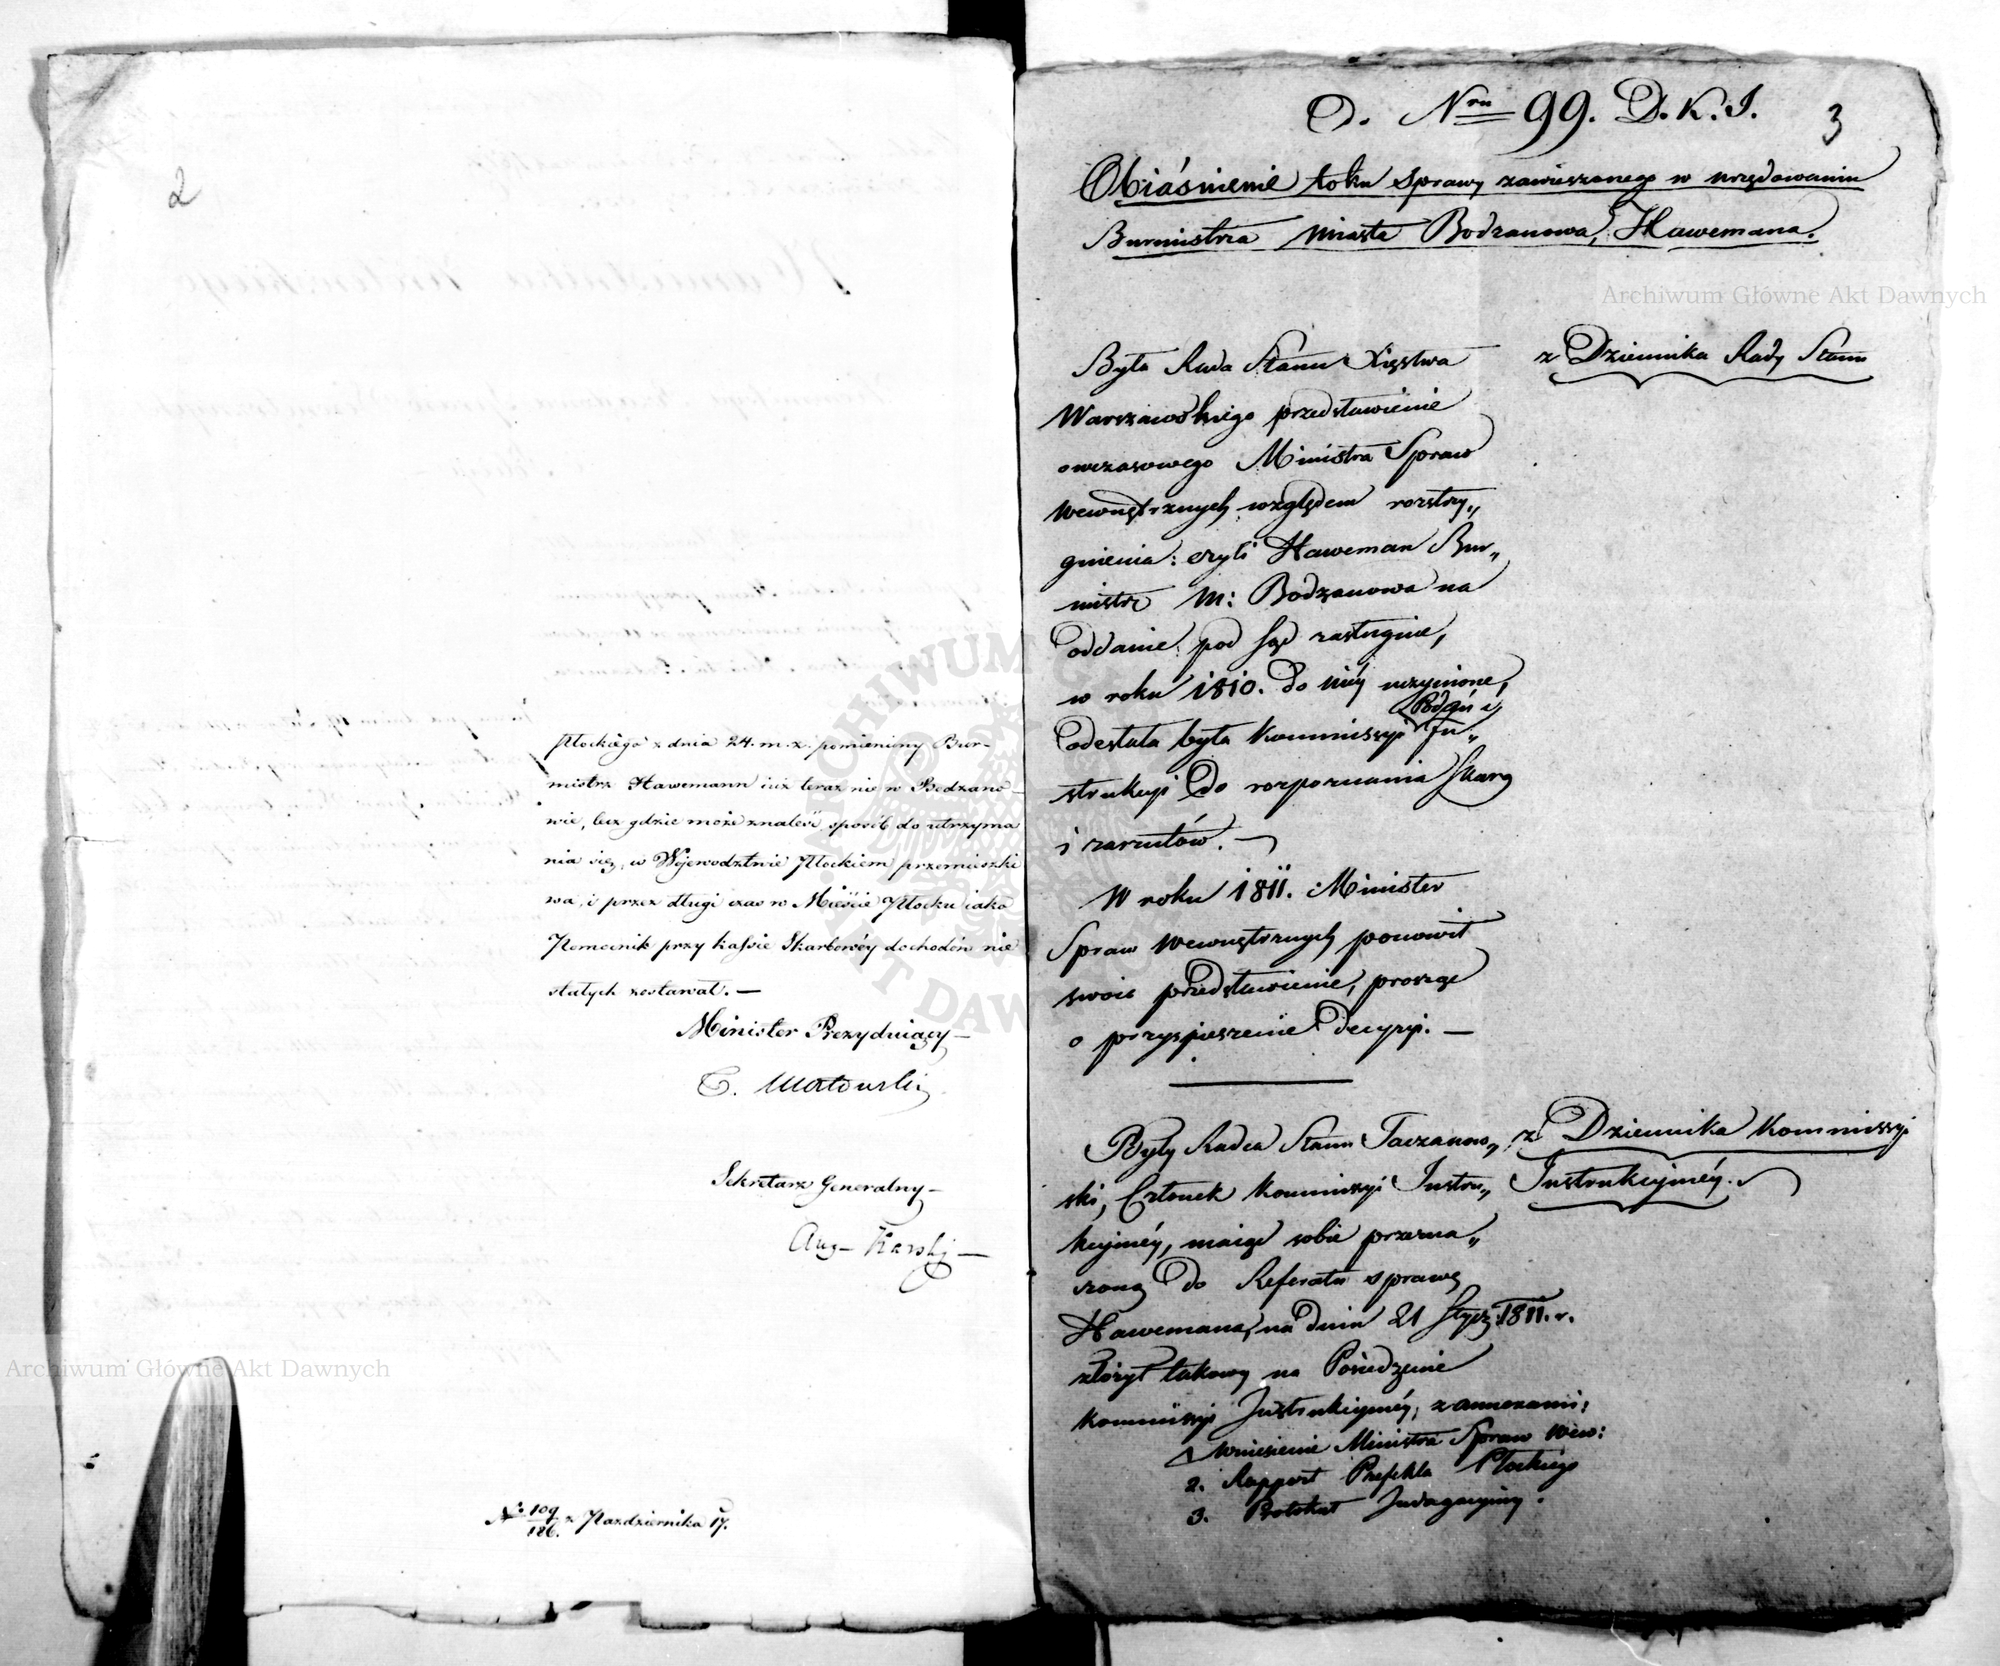 2
Płockiego z dnia 24. m. z. pomieniony Bur-
mistrz Hawemann iuż teraz nie w Bodzano-
wie, lecz gdzie może znaleść sposób do utrzyma
nia się, w Województwie Płockiem przemieszki
wa, i przez długi czas w Mieście Płocku iako
Pomocnik przy kassie Skarbowéy dochodów nie
stałych zostawał. —
Minister Prezyduiący —
Sekretarz Generalny —
Aug— Karski —
N: 109/186. z Października 17.
D. Nru 99. D. K. I.
3
Obiaśnienie toku sprawy zawieszonego w urzędowaniu
Burmistrza miasta Bodzanowa, Hawemana.
z Dziennika Rady Stanu
Była Rada Stanu Xięstwa
Warszawskiego przedstawienie
owczasowego Ministra Spraw
wewnętrznych względem rozstrzy„
gnienia: czyli Haweman Bur„
mistrz m: Bodzanowa na
oddanie pod Sąd zasługuie,
w roku 1810. do niéy uczynione,
odesłała była Kommissyi Podań i In„
strukcyi do rozpoznania skarg
i zarzutów. —
W roku 1811. Minister
Spraw wewnętrznych ponowił
swoie przedstawienie, prosząc
o przyspieszenie decyzyi. —
z Dziennika Kommissyi
Instrukcyinéy.
Były Radca Stanu Taczanow„
ski, Członek Kommissyi Instru„
kcyinéy, maiąc sobie przezna„
czoną do Referatu sprawę
Hawemana, na dniu 21 Stycz: 1811. r.
złożył takowy na Posiedzenie
Kommissyi Instrukcyinéy, z annexami:
1 Wniesienie Ministra Spraw Wew:
2. Rapport Prefekta Płockiego
3. Protokół Indagacyiny.
Archiwum Główne Akt Dawnych
Archiwum Główne Akt Dawnych